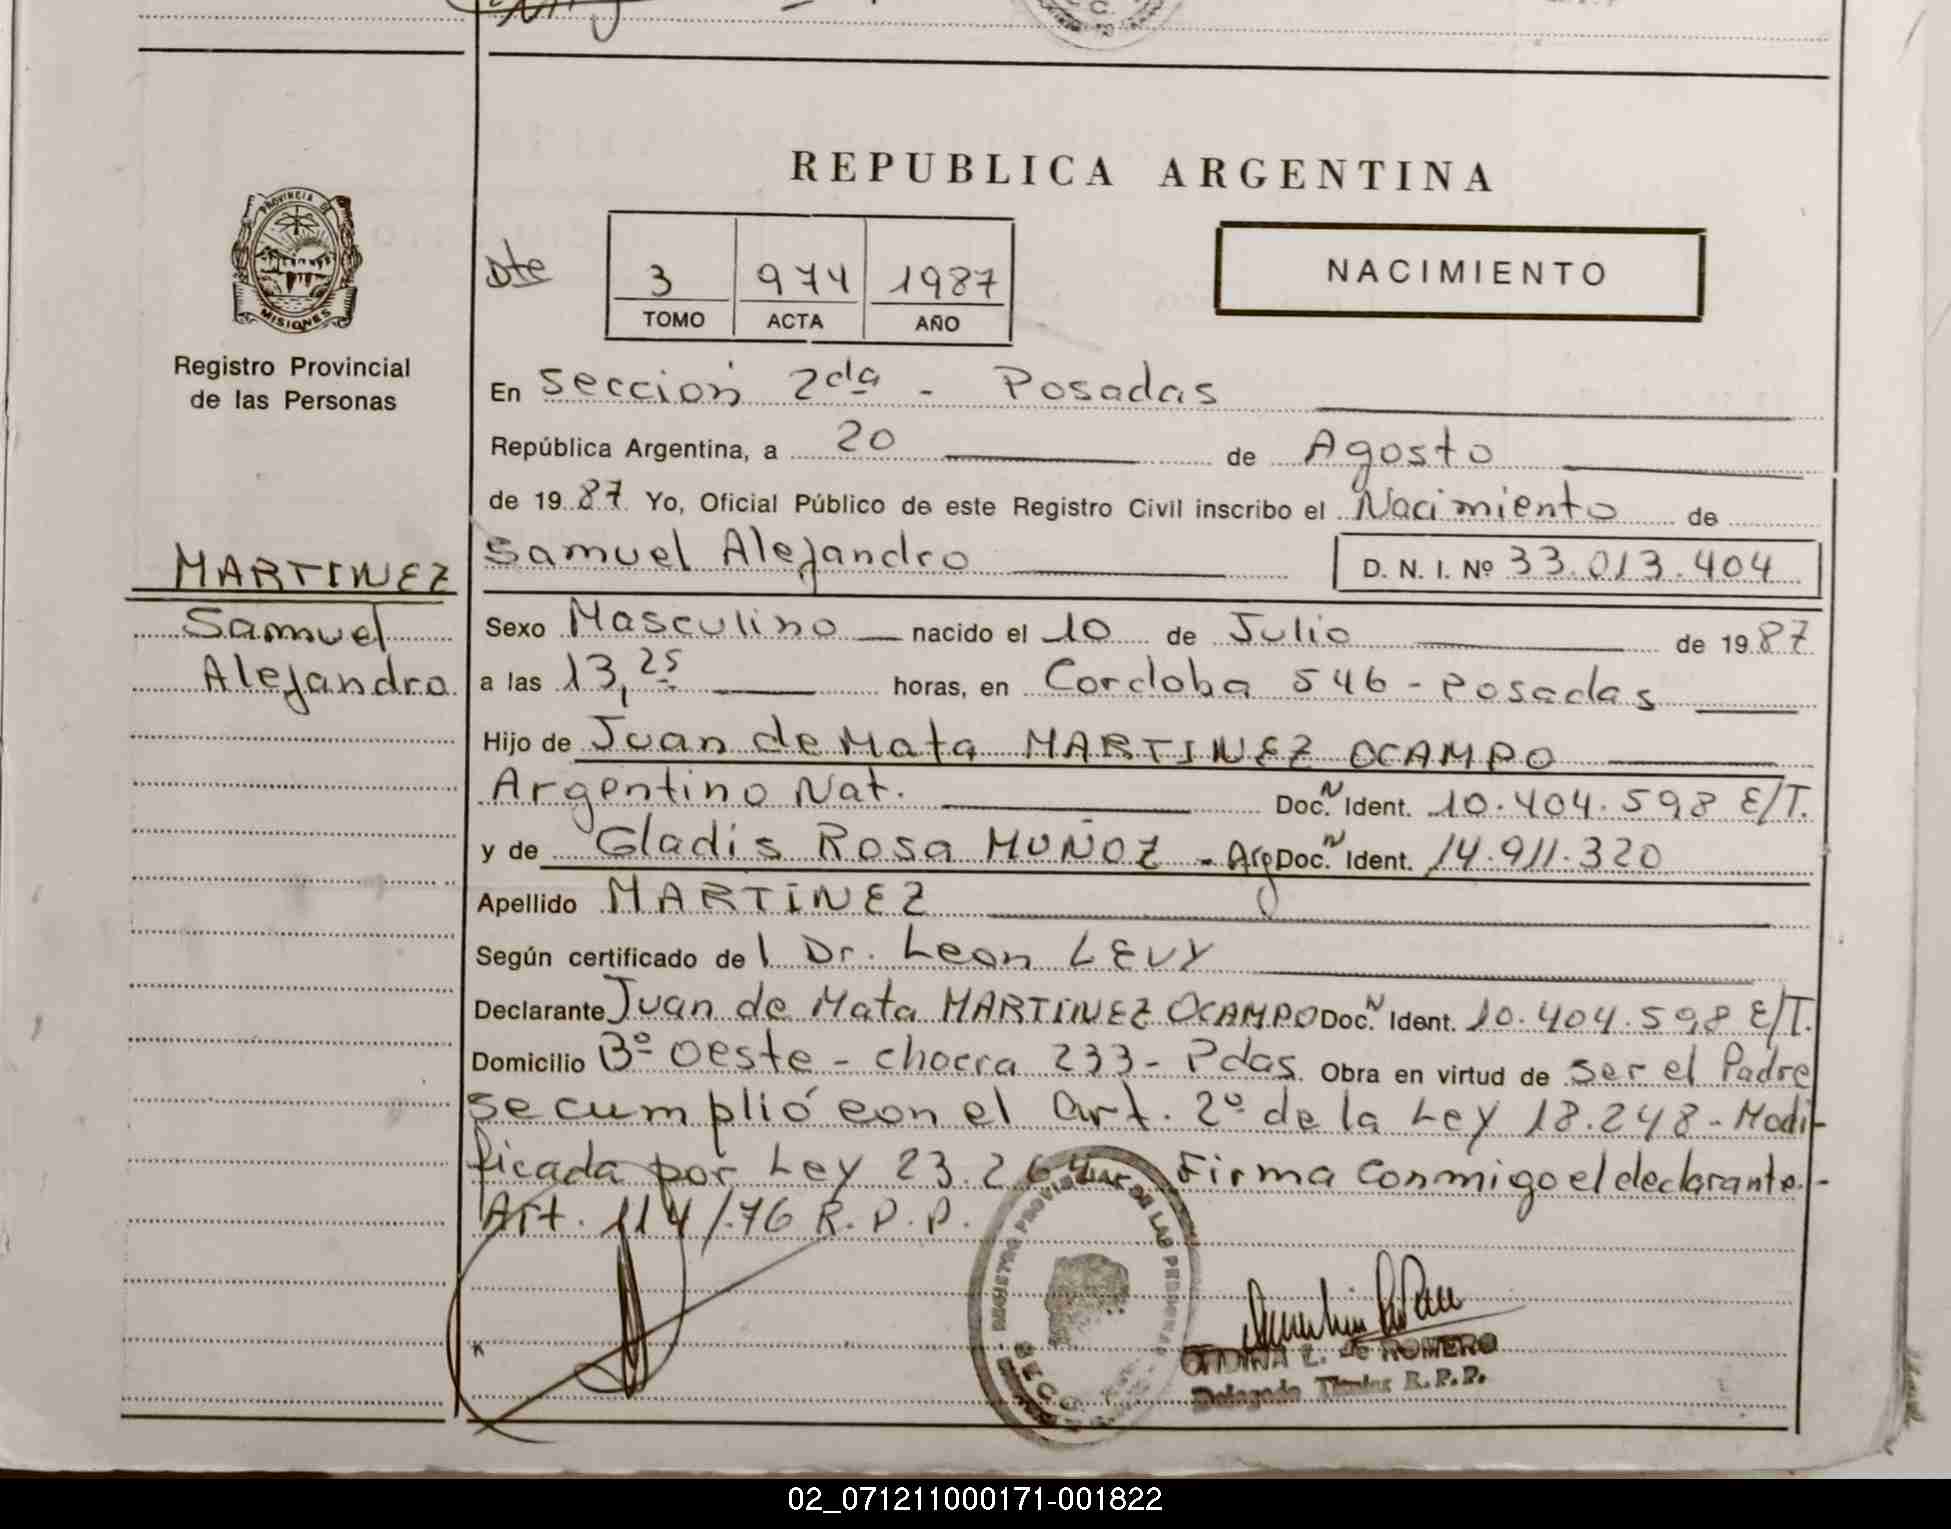 REPUBLICA ARGENTINA
PROVINCIA DE
MISIONES
Registro Provincial
de las Personas
Dte
3 974 1987
TOMO ACTA AÑO
NACIMIENTO
En Sección 2da - Posadas
República Argentina, a 20 de Agosto
de 19 87 Yo, Oficial Público de este Registro Civil inscribo el Nacimiento de
MARTINEZ
Samuel
Alejandro
Samuel Alejandro D. N. I. Nº 33.013.404
Sexo Masculino nacido el 10 de Julio de 19 87
a las 13,25 horas, en Cordoba 546 - Posadas
Hijo de Juan de Mata MARTINEZ OCAMPO
Argentino Nat. Doc. N Ident. 10.404.598 E/T.
y de Gladis Rosa MUÑOZ - Arg Doc. N Ident. 14.911.320
Apellido MARTINEZ
Según certificado del Dr. Leon LEVY
Declarante Juan de Mata MARTINEZ OCAMPO Doc. N Ident. 10.404.598 E/T.
Domicilio Bº Oeste - chacra 233 - Pdas. Obra en virtud de ser el Padre
se cumplió con el art. 2º de la Ley 18.248 - Modi-
ficada por Ley 23.264 Firma conmigo el declarante.-
Art. 114/76 R.P.P.
REGISTRO PROVINCIAL DE LAS PERSONAS
L. de ROMERO
Delegada Titular R.P.P.
02_071211000171-001822